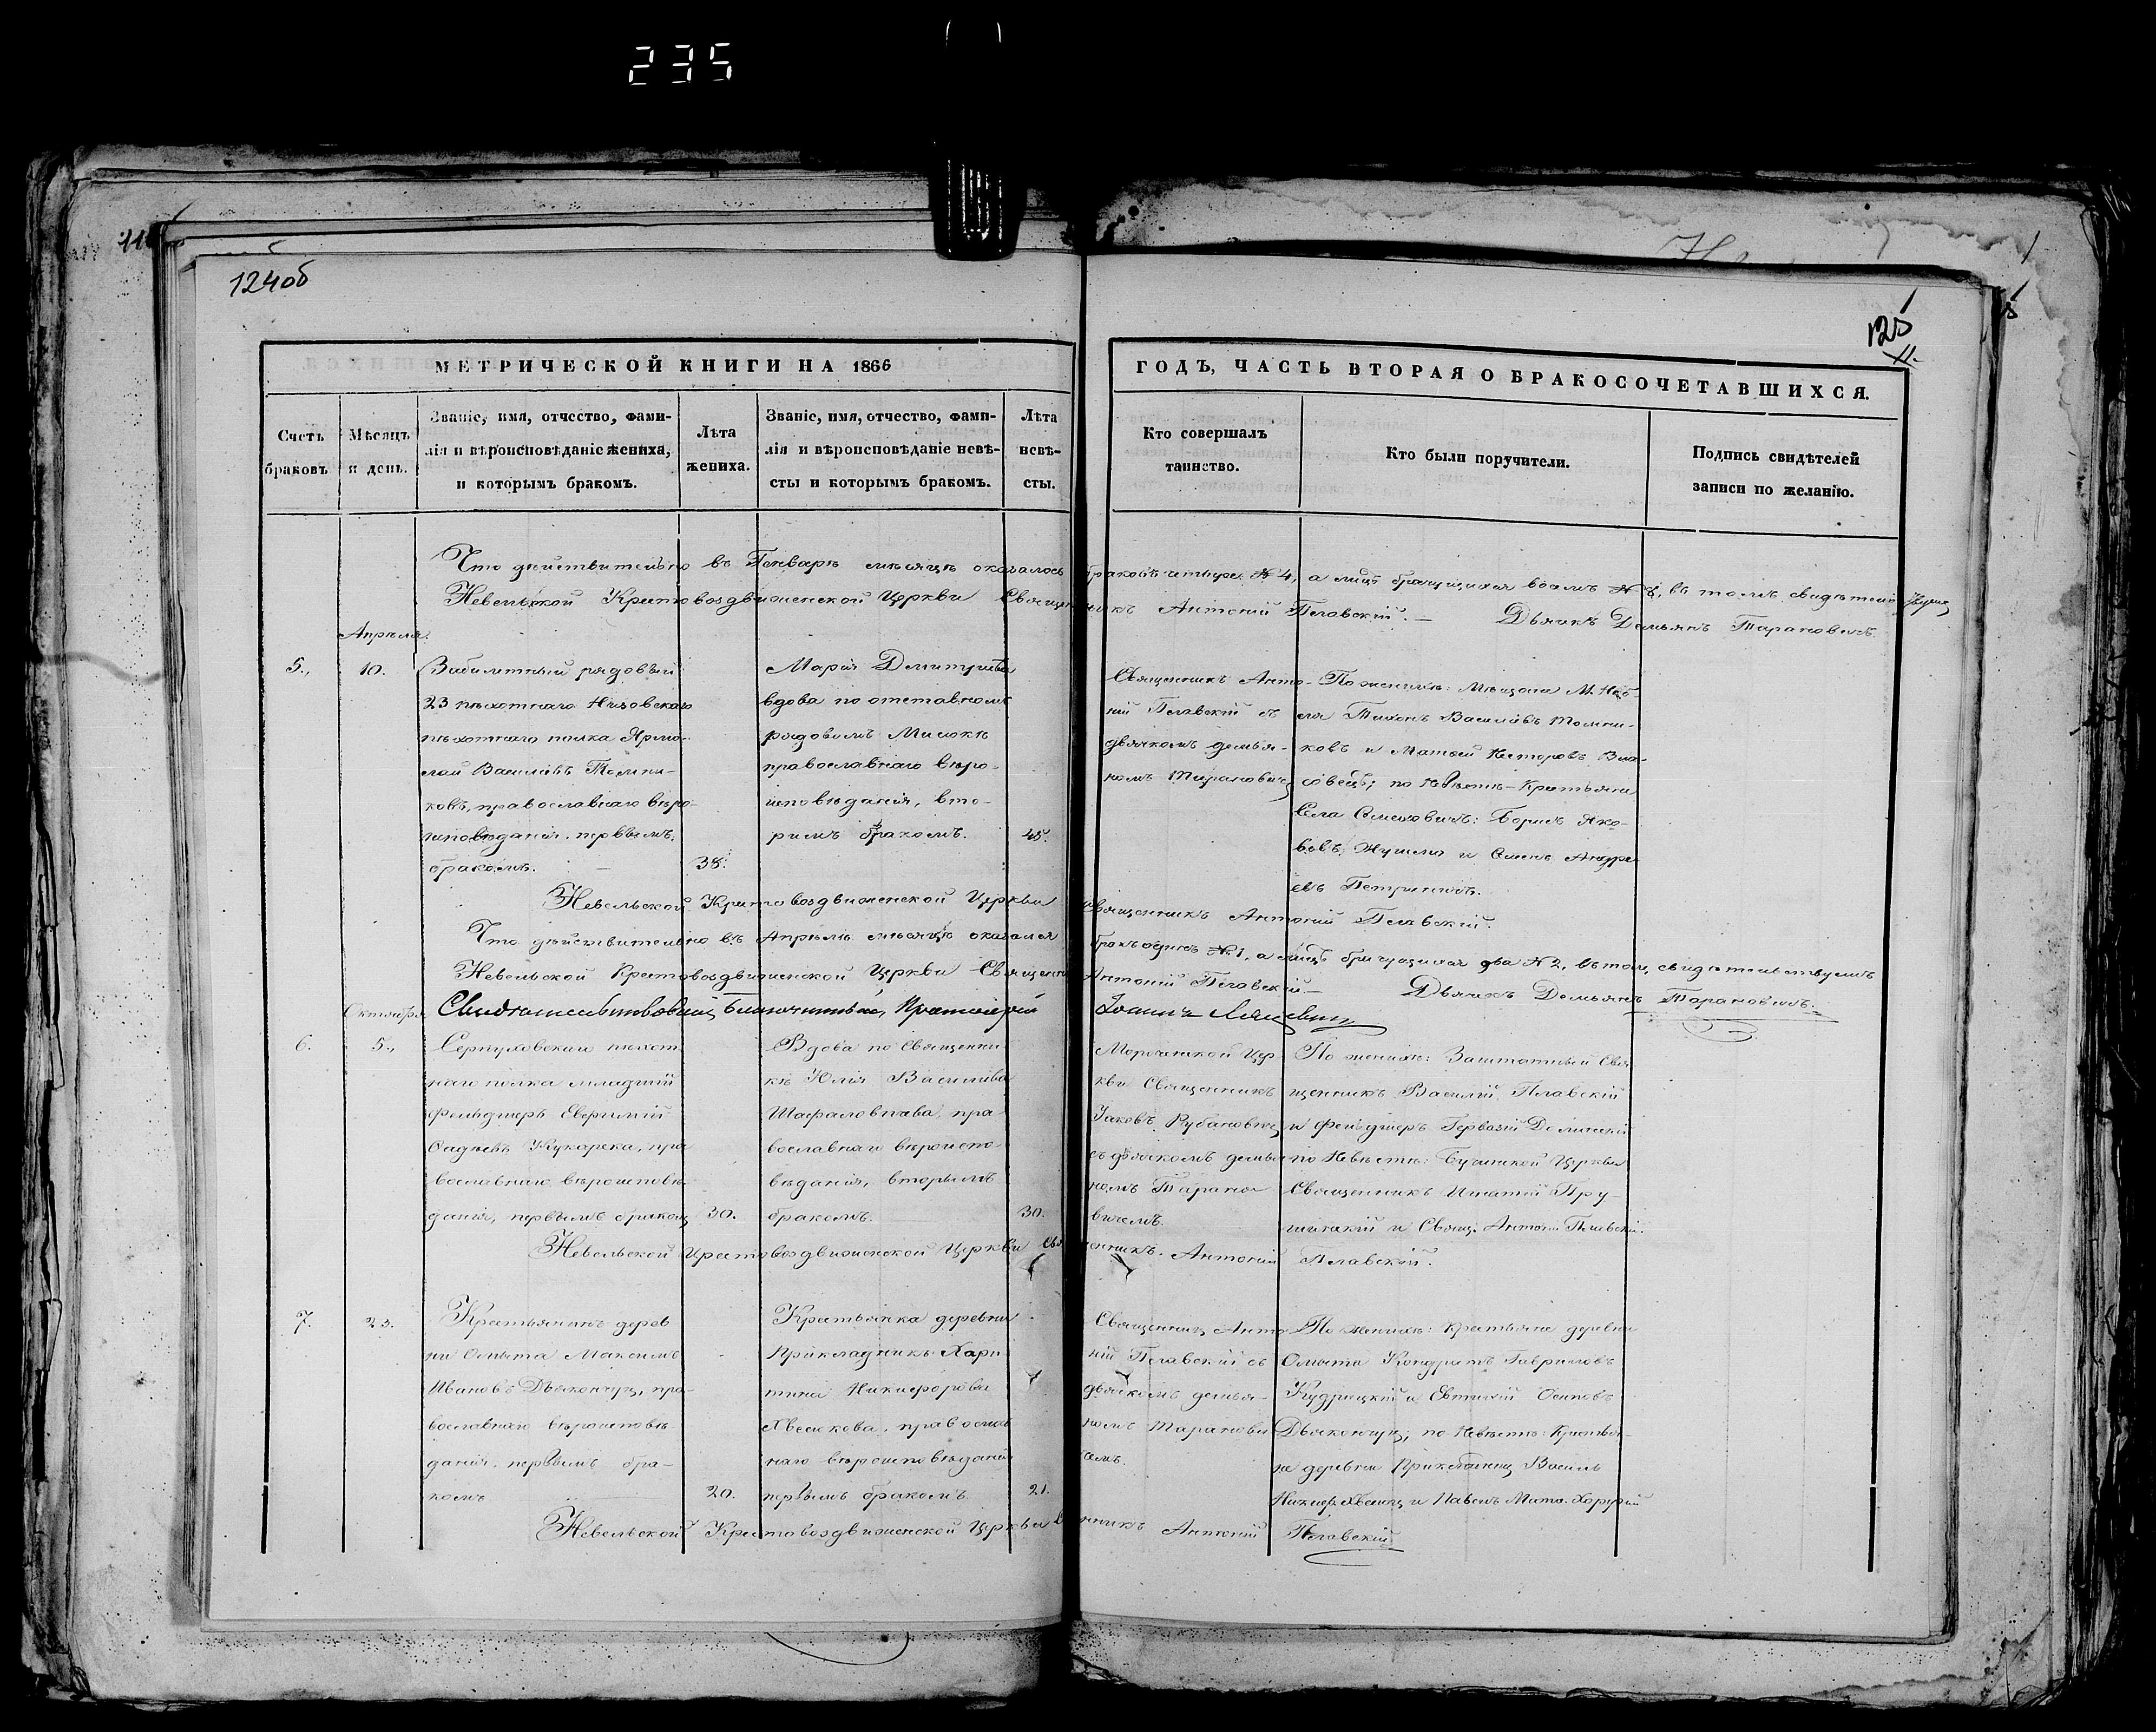 235
124об
125
МЕТРИЧЕСКОЙ КНИГИ НА 1866
ГОДЪ, ЧАСТЬ ВТОРАЯ О БРАКОСОЧЕТАВШИХСЯ.
Счетъ браковъ
Мѣсяцъ и день.
Званіе, имя, отчество, фами-
лія и вѣроисповѣданіе жениха,
и которымъ бракомъ.
Лѣта
жениха.
Званіе, имя, отчество, фами-
лія и вѣроисповѣданіе невѣ-
сты и которымъ бракомъ.
Лѣта
невѣ-
сты.
Кто совершалъ
таинство.
Кто были поручители.
Подпись свидѣтелей
записи по желанію.
Что дѣйствительно въ Генварѣ мѣсяцѣ оказалось браковъ четыре № 4, а лицъ брачущихся восмъ № 8, въ томъ
Невельской Крестовоздвиженской Церкви Священникъ Антоній Пелавскій. — Дьячкъ Демьянъ Тарановичъ
Апрѣля
5.,
10.
рядовый
23 пѣхотнаго Низовскаго
пѣхотнаго полка Ярмо-
лай Васильевъ
ковъ, православнаго вѣро-
исповѣданія, первымъ
бракомъ. —
38.
Марія Дмитріева
вдова по отставномъ
рядовомъ
православнаго вѣро-
исповѣданія, вто-
римъ бракомъ.
45.
Священникъ Анто-
ній Пелавскій съ
дьячкомъ Демья-
номъ Тарановичемъ
По женихѣ: Мѣщани М.
Тихонъ Васильевъ
ковъ и Матвей Несторовъ
по Невѣстѣ - Крестьяни
Села Семиховичъ: Борисъ Яко-
вовъ и Семенъ Андре-
евъ
Невельской Крестовоздвиженской Церкви Священникъ Антоній Пелавскій.
Что дѣйствительно въ Апрѣлѣ мѣсяцѣ оказался бракъ одинъ № 1, а лицъ брачущихся два № 2, въ томъ свидѣтельствуемъ
Невельской Крестовоздвиженской Церкви Священникъ Антоній Пелавскій — Дьячкъ Демьянъ Тарановичъ.
Свидѣтельствовалъ Благочинный Протоіерей Іоаннъ
Октября
6.
5.,
Серпуховскаго пѣхот-
наго полка младшій
фельдшеръ
Кукарека, пра-
вославнаго вѣроисповѣ-
данія, первымъ бракомъ
30.
Вдова по Священни-
кѣ Юлія Васильева
пра-
вославнаго вѣроиспо-
вѣданія, вторымъ
бракомъ.
30.
Морочанской Цер-
кви Священникъ
Іаковъ Рубановичъ
съ дьячкомъ Демья-
номъ Таранов-
ичемъ.
По женихѣ: Заштатный Свя-
щенникъ Василій Пелавскій
и Фельдшеръ
по Невѣстѣ: Церкви
Священникъ Игнатій
и Свящ. Антоній Пелавскій.
Невельской Крестовоздвиженской Церкви Священникъ Антоній Пелавскій.
7.
23.
Крестьянинъ дерев-
ни Омыта Максимъ
Ивановъ Дьякончукъ, пра-
вославнаго вѣроисповѣ-
данія, первымъ бра-
комъ
20.
Крестьянка деревни
Прикладникъ Хари-
тина Никифорова
православ-
наго вѣроисповѣданія
первымъ бракомъ.
21.
Священникъ Анто-
ній Пелавскій съ
дьячкомъ Демья-
номъ Таранови-
чемъ.
По женихѣ: крестьяне деревни
Омыта Кондратъ Гавриловъ
Кудрицкій и Евтихій Осиповъ
Дьякончукъ; по Невѣстѣ: Крестья-
не деревни Прикладникъ Василь
и Павелъ
Невельской Крестовоздвиженской Церкви Священникъ Антоній Пелавскій